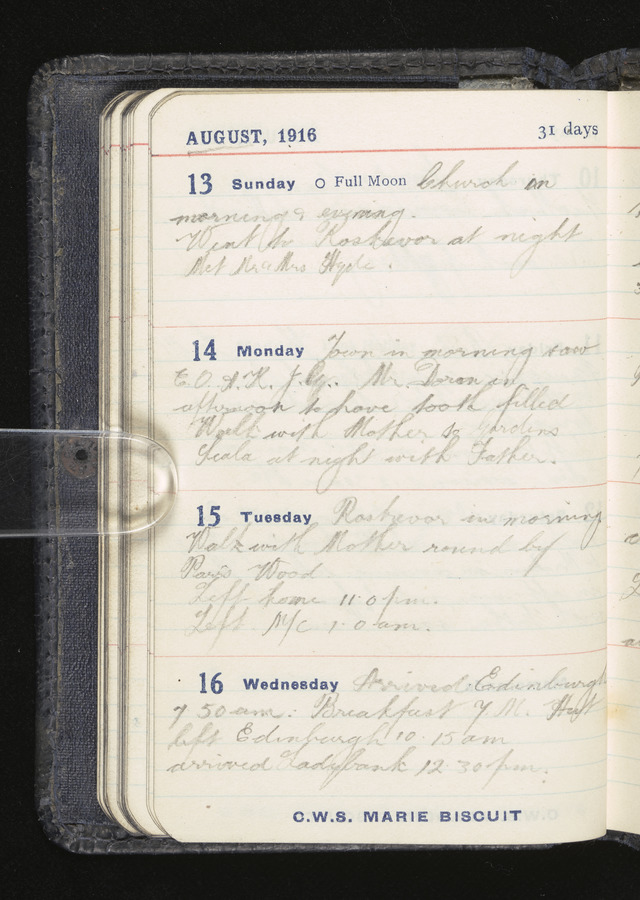 AUGUST, 1916 31 days
13 Sunday Full Moon Church in
morning & evening.
Went to Roskevor at night
Met Mr & Mrs Hyde.
14 Monday Town in morning saw
E.O. A.K. J.G. Mr Doron in
afternoon to have tooth filled
Walk with Mother to Gardens
Scala at night with Father.
15 Tuesday Roskevor in morning
Walk with Mother round by
Wood
Left home 11.0 pm.
Left M/C 1.0 am.
16 Wednesday Arrived Edinburgh
7 50 am. Breakfast Y.M. Hut
left Edinburgh 10.15 am
arrived Ladybank 12.30 pm.
C.W.S. MARIE BISCUIT